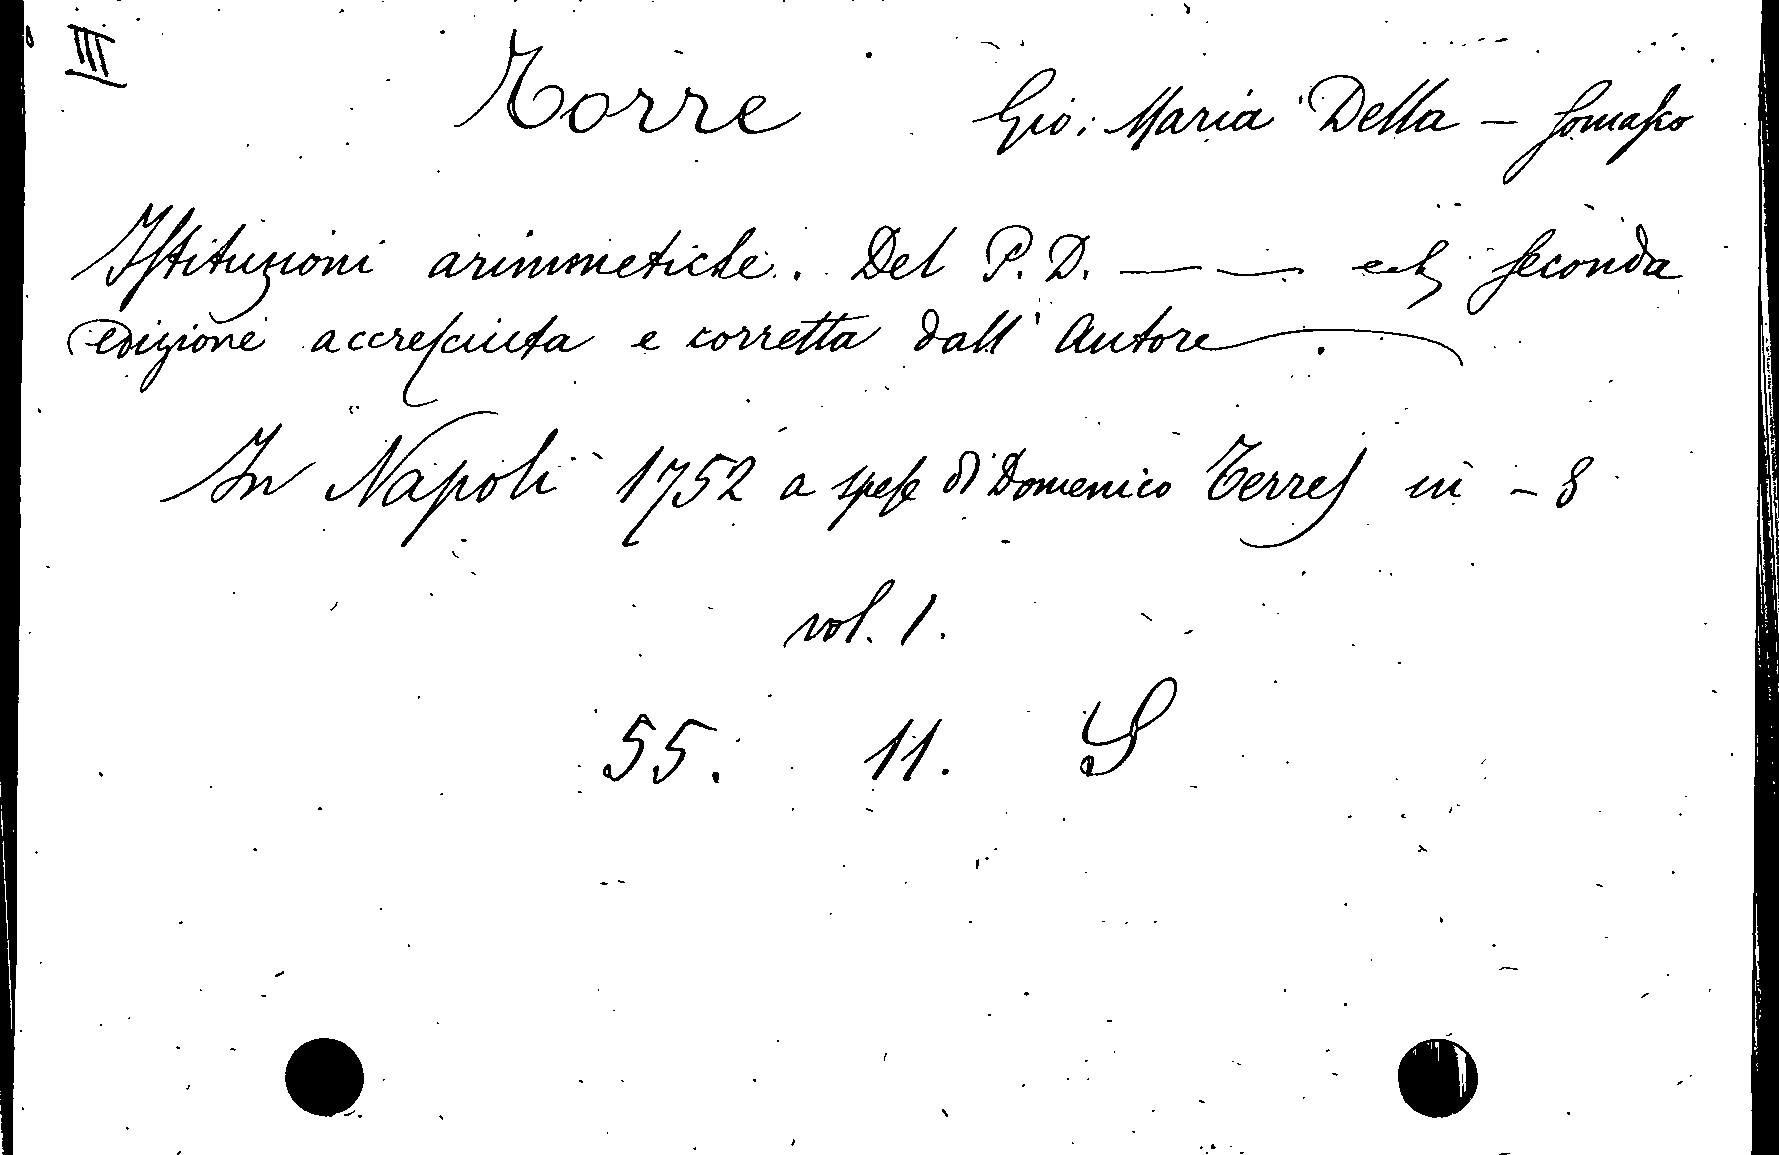 III
Torre Gio: Maria Della - Somasco
Istituzioni arimmetiche. Del P. D. — — seconda
edizione accresciuta e corretta dall' Autore
In Napoli 1752 a spese di Domenico Terres in - 8
vol. 1.
55. 11. S